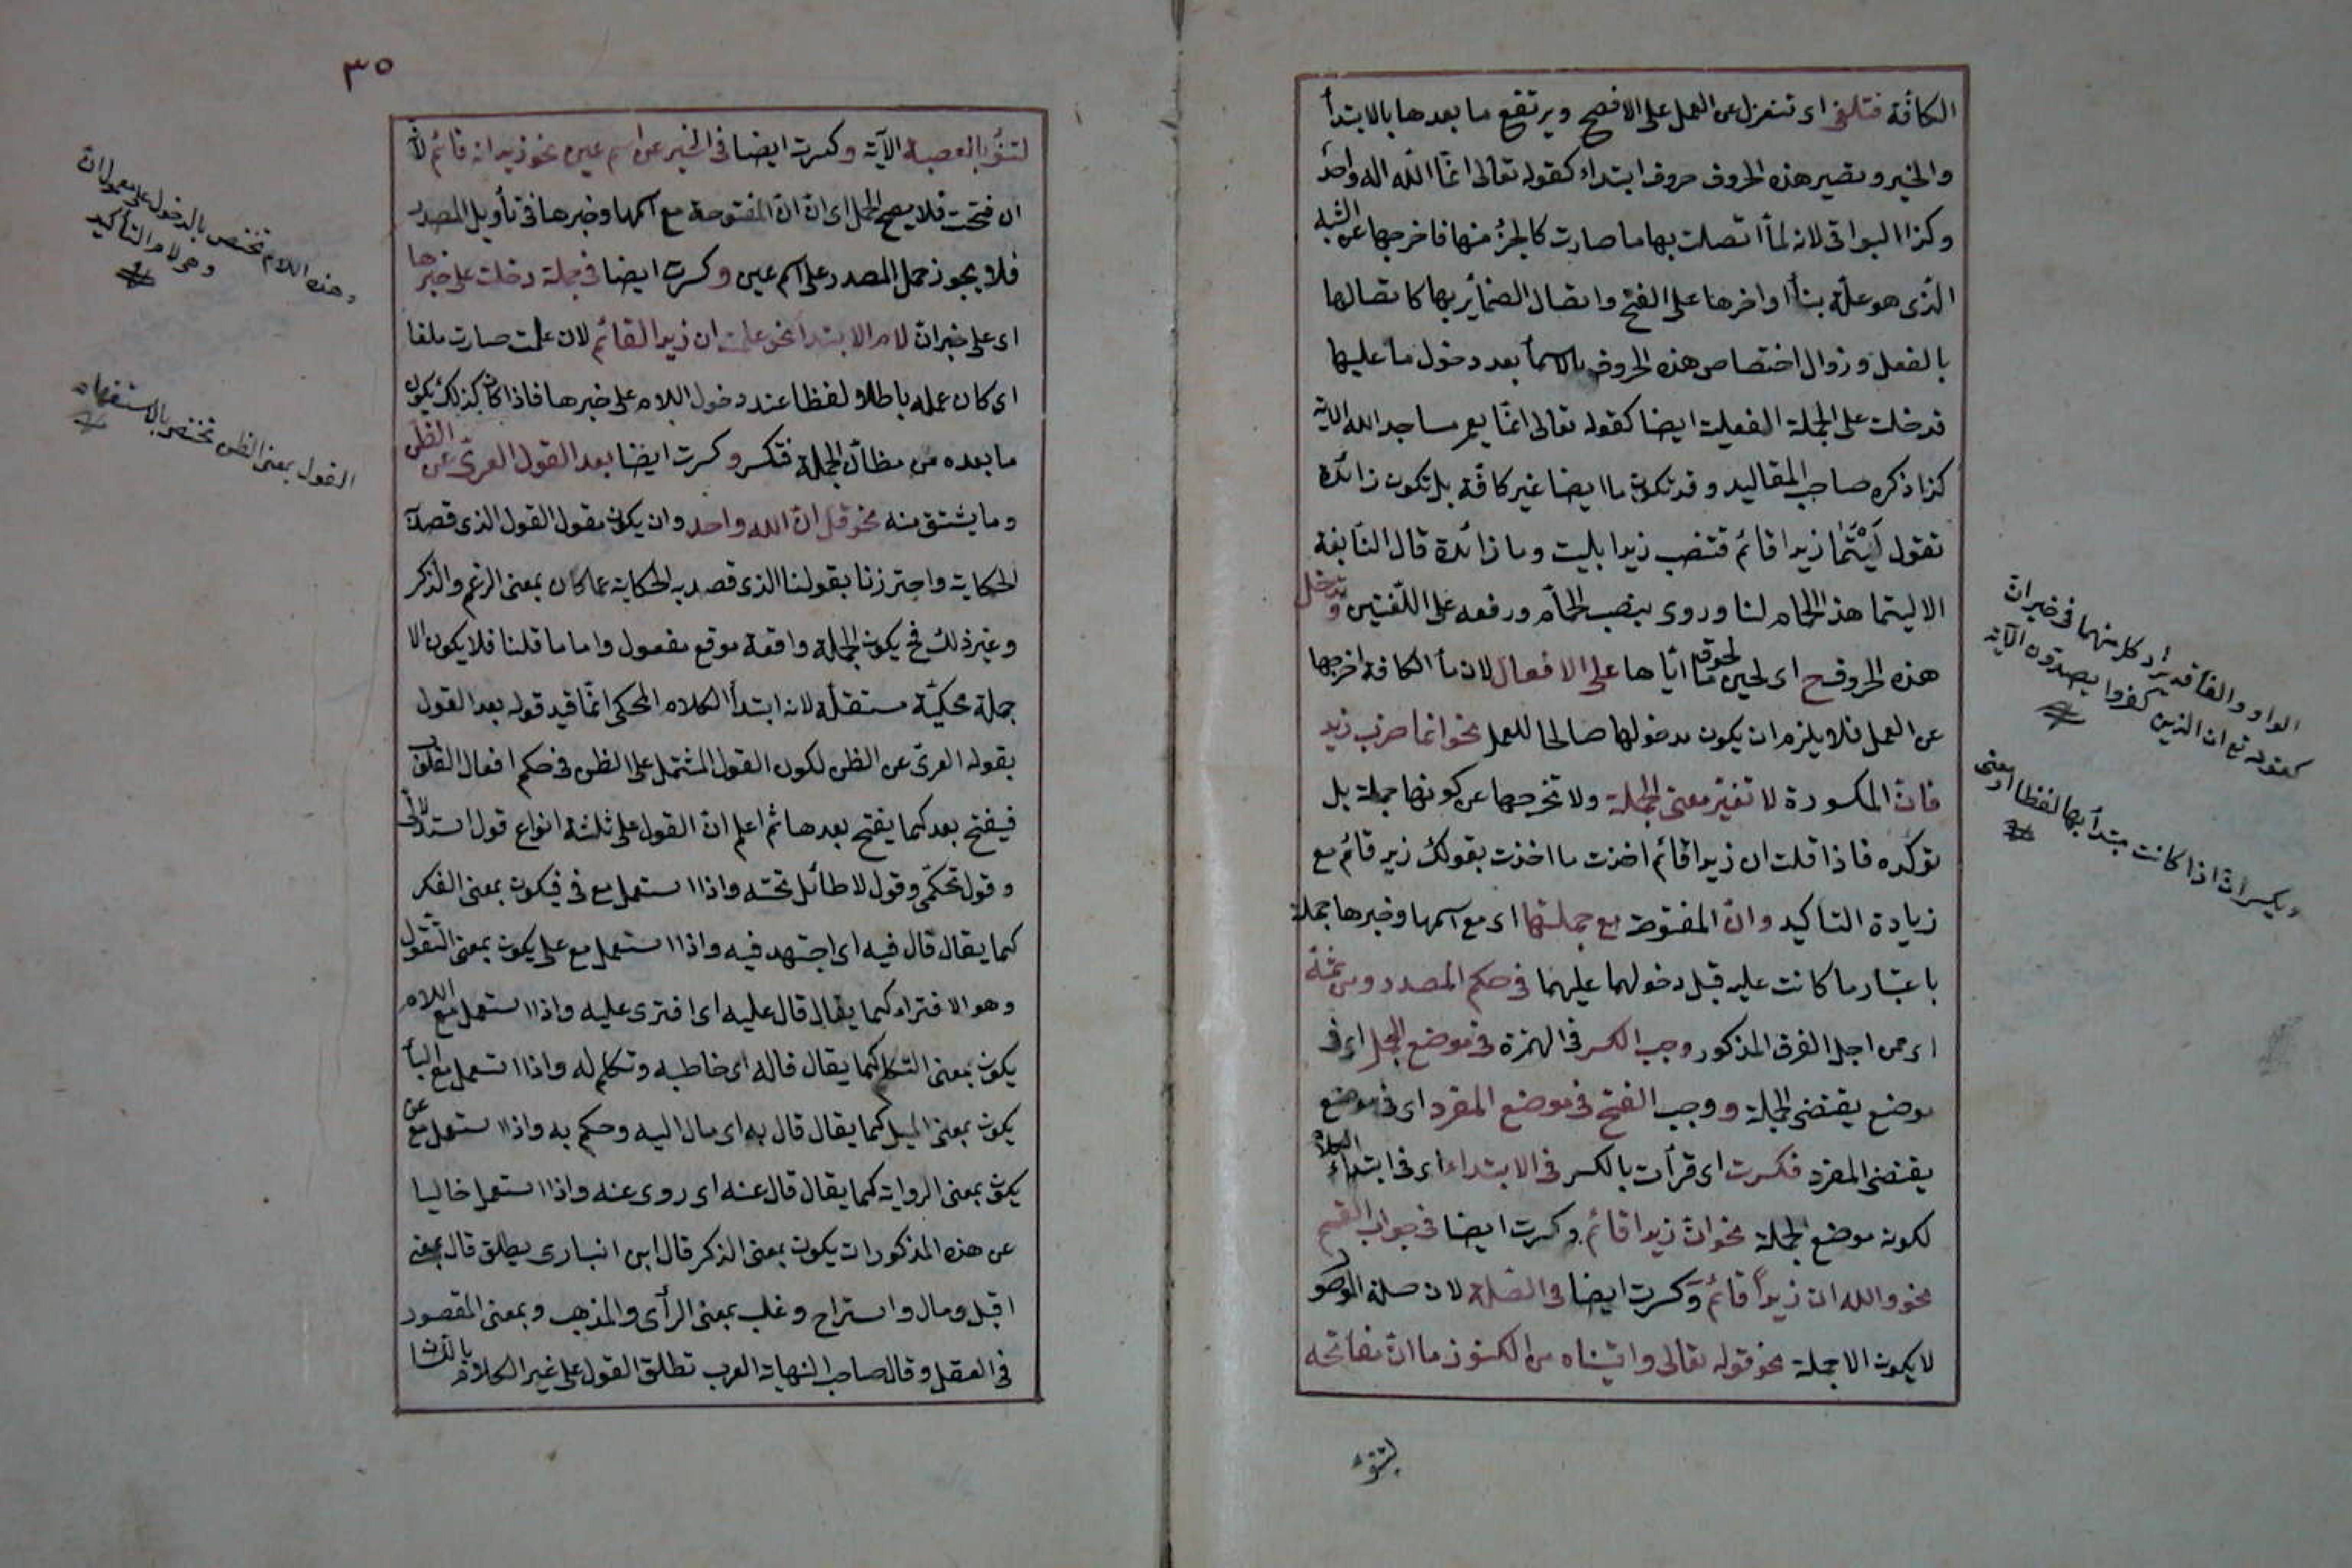 الكافّة فتلغى اى تنعزل عن العمل على الافصح ويرتفع ما بعدها بالابتدأ
والخبر وتصير هذه الحروف حروف ابتداء كقوله تعالى انّما اللّه اله واحد
وكذا البواقى لانه لمّا اتصلت بها ما صارت كالجزء منها فاخرجها عن الشبه
الّذى هو علّة بنأ اواخرها على الفتح واتصال الضمأير بها كاتصالها
بالفعل وزوال اختصاص هذه الحروف بالاسمأ بعد دخول ما عليها
قد دخلت على الجملة الفعلية ايضا كقوله تعالى انّما يعمر مساجد الله الاية
كذا ذكره صاحب المقاليد وقد تكون ما ايضا غير كافّة بل تكون زائدة
تقول لَيْتَمَا زيدا قائم فتنصب زيدا بليت وما زائدة قال النّابغة
الا ليتما هذا الحمام لنا وروى بنصب الحمأم ورفعه على اللّغتين وتدخل
هذه الحروف ح اى لحين لحوق ما ايّاها على الافعال لان ما الكافة اخرجها
عن العمل فلا يلزم ان يكون مدخولها صالحا للعمل نحو انما ضرب زيد
فانّ المكسورة لا تغيّر معنى الجملة ولا تخرجها عن كونها جملة بل
تؤكده فاذا قلت ان زيدا قائم اخذت ما اخذت بقولك زيد قائم مع
زيادة التاكيد وانّ المفتوحة مع جملتها اى مع اسمها وخبرها جملة
باعتبار ما كانت عليه قبل دخولهما عليهما فى حكم المصدر ومن ثمّة
اى من اجل الفرق المذكور وجب الكسر فى الهمزة فى موضع الجمل اى فى
موضع يقتضى الجملة ووجب الفتح فى موضع المفرد اى فى موضع
يقتضى المفرد فكسرت اى قرأت بالكسر فى الابتداء اى فى ابتداء الكلام
لكونه موضع الجملة نحو انّ زيدا قائم وكسرت ايضا فى جواب القسم
نحو والله ان زيداً قائم وكسرت ايضا فى الصّلة لان صلة الموصول
لا يكون الا جملة نحو قوله تعالى واتيناه من الكنوز ما انّ مفاتحه
لتنوء
الواو والفأ قد يراد كل منهما فى خبر انّ
كقوله تع ان الذين كفروا ويصدون الآية
ويكسر انّ اذا كانت مبتدأ بها لفظا او معنى
٣٥
لتنوُ بالعصبة الآية وكسرت ايضا فى الخبر عن اسم عين نحو زيد انه قائم لانّ
ان فتحت فلا يصح الحمل اى ان انّ المفتوحة مع اسمها وخبرها فى تأويل المصدر
فلا يجوز حمل المصدر على اسم عين وكسرت ايضا فى جملة دخلت على خبرها
اى على خبر انّ لام الابتدأ نحو علمت ان زيدا لقائم لان علمت صارت ملغا
اى كان عمله باطلا لفظا عند دخول اللام على خبرها فاذا كان كذلك يكون
ما بعده من مظانّ الجملة فتكسر وكسرت ايضا بعد القول العرىّ عن الظن
وما يشتق منه نحو قل انّ الله واحد وان يكون مقول القول الذى قصد
الحكاية واحترزنا بقولنا الذى قصد به الحكاية عما كان بمعنى الزعم والذكر
وغير ذلك فح يكون الجملة واقعة موقع مفعول واما ما قلنا فلا يكون الا
جملة محكيّة مستقلّة لانه ابتدأ الكلام المحكى انّما قيد قوله بعد القول
بقوله العرىّ عن الظن لكون القول المشتمل على الظن فى حكم افعال القلوب
فيفتح بعد كما يفتح بعدها ثم اعلم انّ القول على ثلثة انواع قول استدلالى
وقول تحكمّى وقول لا طائل تحته واذا استعمل مع فى فيكون بمعنى الفكر
كما يقال قال فيه اى اجتهد فيه واذا استعمل مع على يكون بمعنى التّقول
وهو الافتراء كما يقال قال عليه اى افترى عليه واذا استعمل مع اللام
يكون بمعنى التكلم كما يقال قاله اى خاطبه وتكلم له واذا استعمل مع البأ
يكون بمعنى الميل كما يقال قال به اى مال اليه وحكم به واذا استعمل مع عن
يكون بمعنى الرواية كما يقال قال عنه اى روى عنه واذا استعمل خاليا
عن هذه المذكورات يكون بمعنى الذكر قال ابن انبارى يطلق قال بمعنى
اقبل ومال واستراح وغلب بمعنى الرأى والمذهب وبمعنى المقصود
فى العقل وقال صاحب النهاية العرب تطلق القول على غير الكلام
وهذه اللام تختص بالدخول على معمول انّ
وهو لام التأكيد
القول بمعنى الظن تختص بالاستفهام